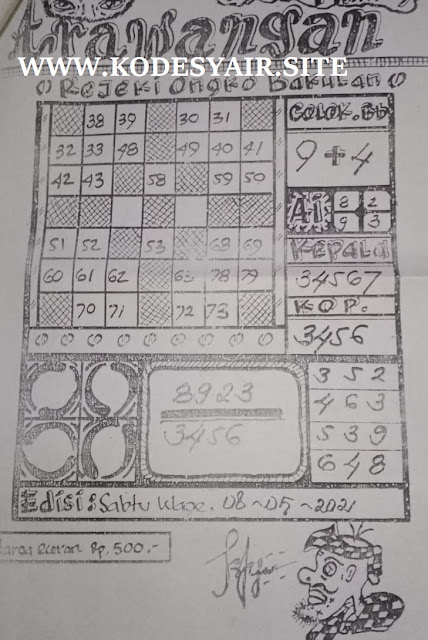 trawangan
WWW.KODESYAIR.SITE
Rejeki Ongko Bakulan
38 39 30 31
32 33 48 49 40 41
42 43 58 59 50
51 52 53 68 69
60 61 62 63 78 79
70 71 72 73
COLOK.Bb
9 + 4
Ai 8 2
9 3
KEPALA
34567
KOP.
3456
8923
3456
3 5 2
4 6 3
5 3 9
6 4 8
Edisi : Sabtu Wage. 08 ~ 05 ~ 2021
Rp. 500.-